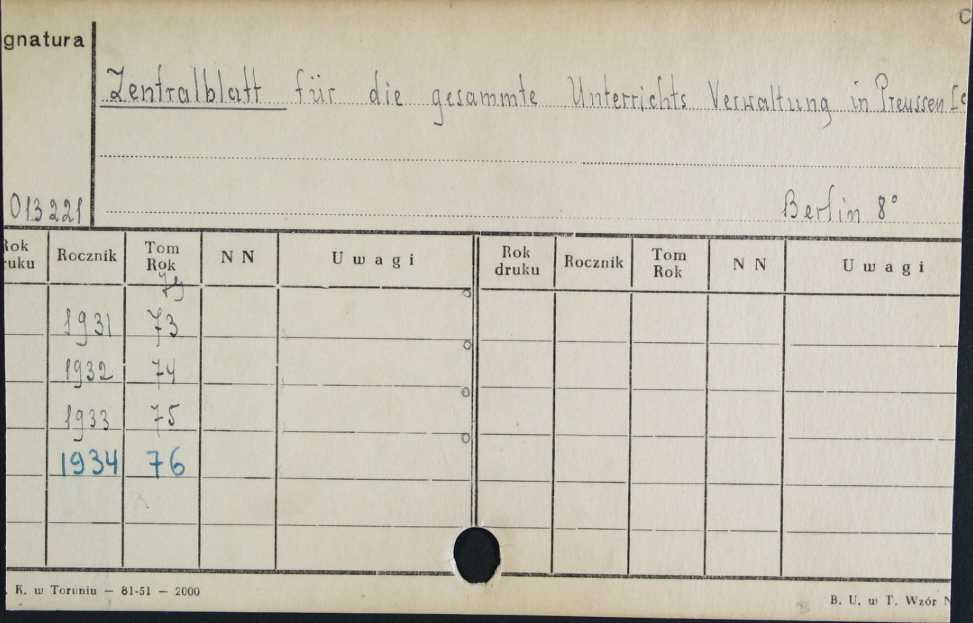 gnatura
Zentralblatt für die gesammte Unterrichts Verwaltung in Preussen
013221
Berlin 8°
Rok
ruku Rocznik Tom
Rok N N Uwagi Rok
druku Rocznik Tom
Rok N N Uwagi
1931 73
1932 74
1933 75
1934 76
K. w Toruniu — 81-51 — 2000
B. U. w T. Wzór